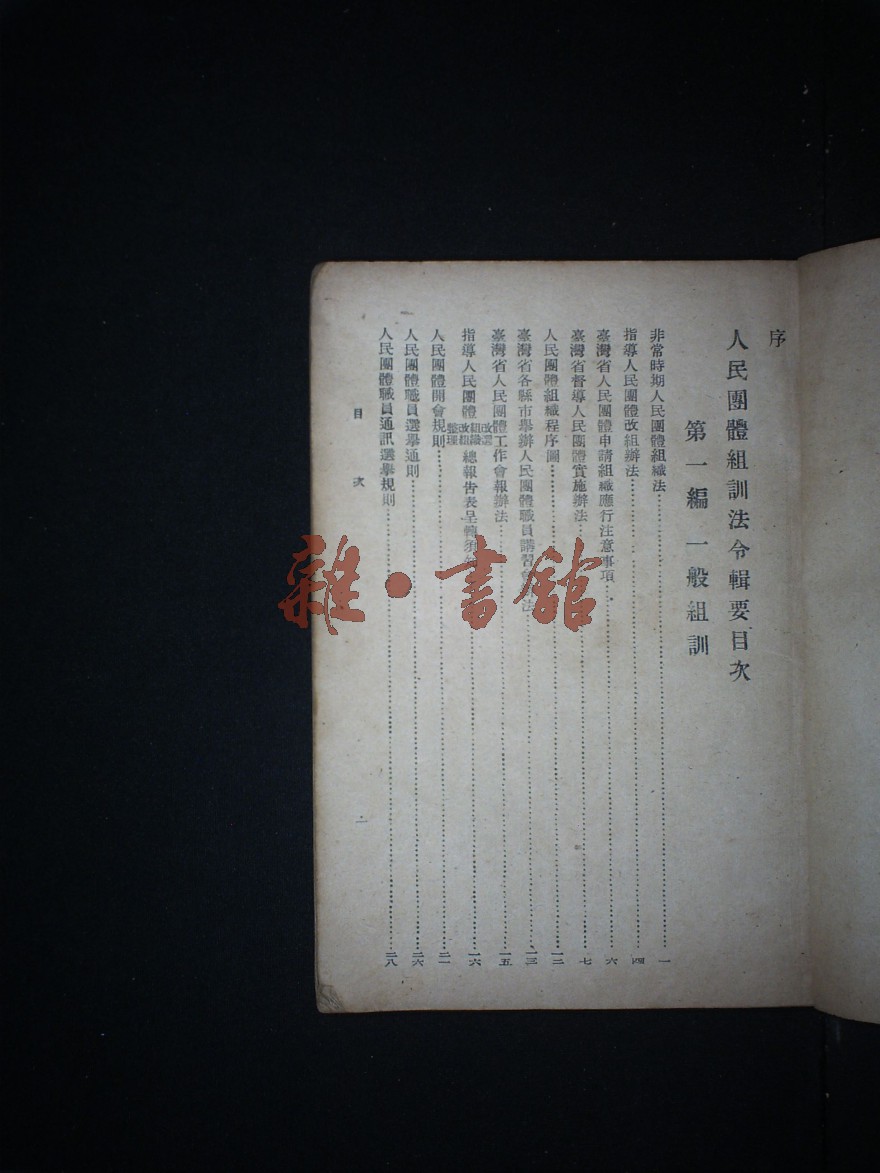 序
人民團體組訓法令輯要目次
第一編 一般組訓
非常時期人民團體組織法……一
指導人民團體改組辦法……四
臺灣省人民團體申請組織應行注意事項……六
臺灣省督導人民團體實施辦法……七
人民團體組織程序圖……一二
臺灣省各縣市舉辦人民團體職員講習會 法……一三
臺灣省人民團體工作會報辦法……一五
指導人民團體 改選 組織 改組 整理 總報告表呈轉須……一六
人民團體開會規則……二一
人民團體職員選舉通則……二六
人民團體職員通訊選舉規則……二八
目次
一
雜·書館